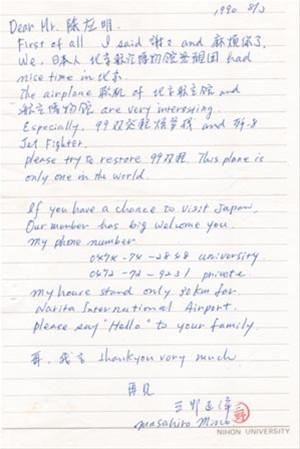 1990 8/3
Dear Mr. 陈应明.
First of all I said 谢々 and 麻烦你了.
We, 日本人 北京航空博物館 参観団 had
nice time in 北京.
The airplane 飛机 of 北京航空院 and
航空博物院 are very interesting.
Especially, 99双発軽爆撃機 and
Jet Fighter.
please try to restore 99双軽. This plane is
only one in the world.
If you have a chance to visit Japan,
Our member has big welcome you.
My phone number
0474-74-2848 university
0472-72-9231 private
my house stand only 30km for
Narita International Airport.
please say "Hello" to your family.
再, 我言 thankyou very much
再見
三野正洋
Masahiro Mino
NIHON UNIVERSITY